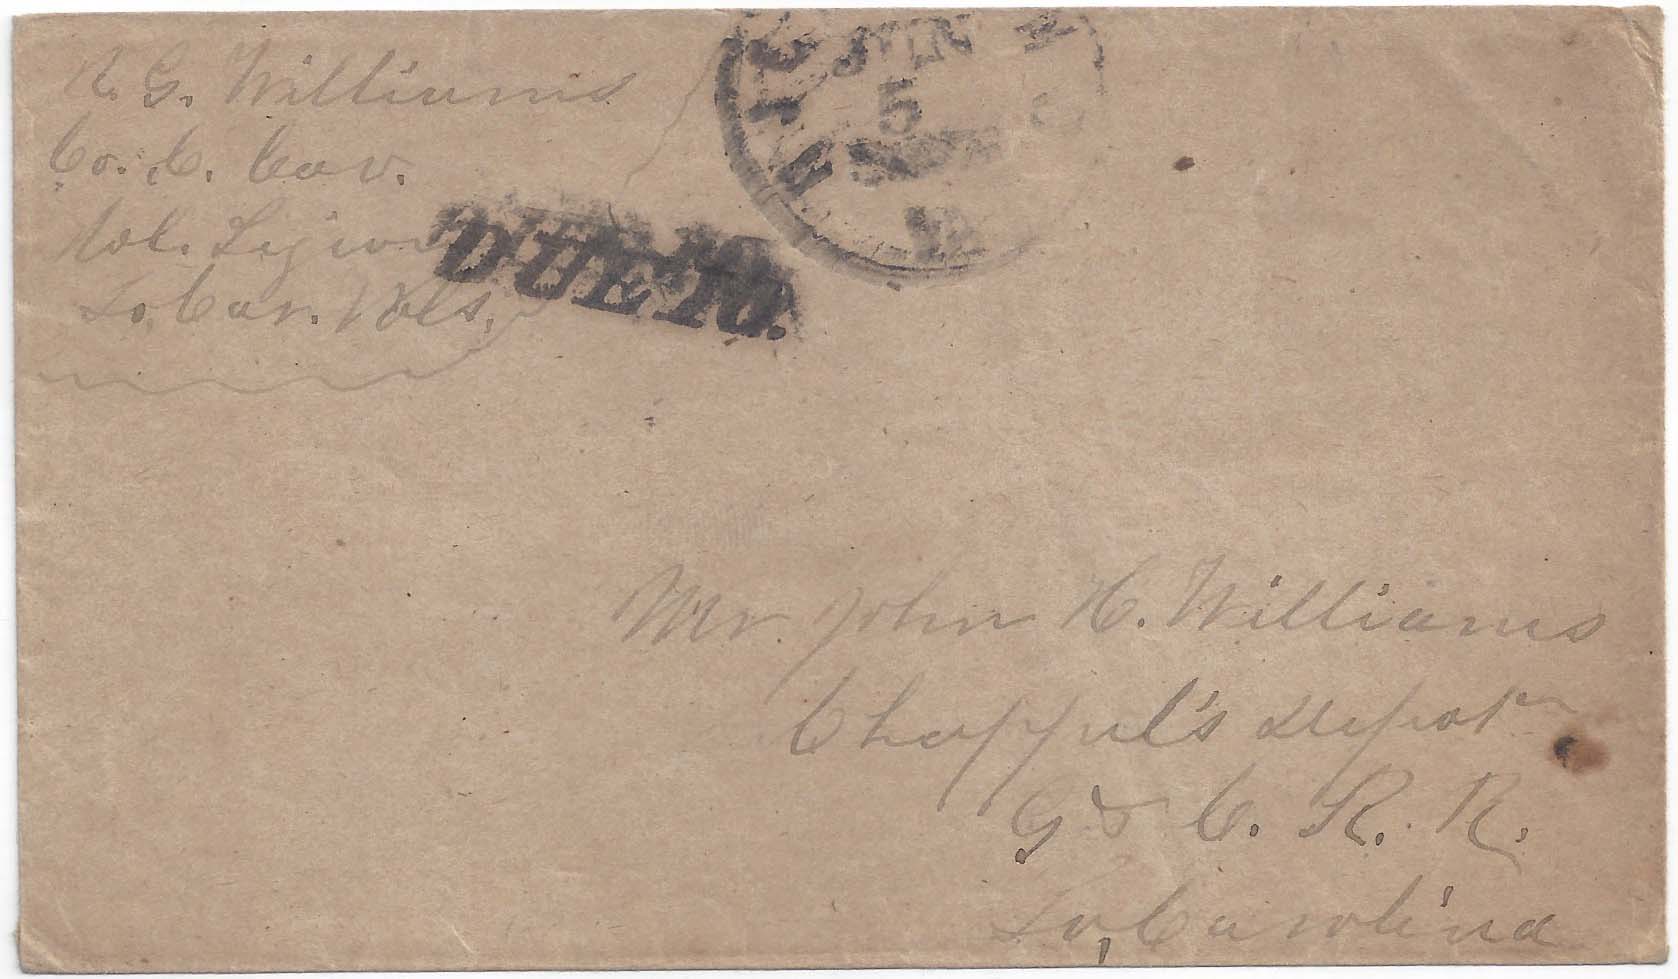 R. G. Williams
Co. C. Cav.
Hol. Legion
So. Car. Vols.
DUE 10.
JUN
5
Mr. John H. Williams
Chappel's Depot
G & C. R. R.
So, Carolina